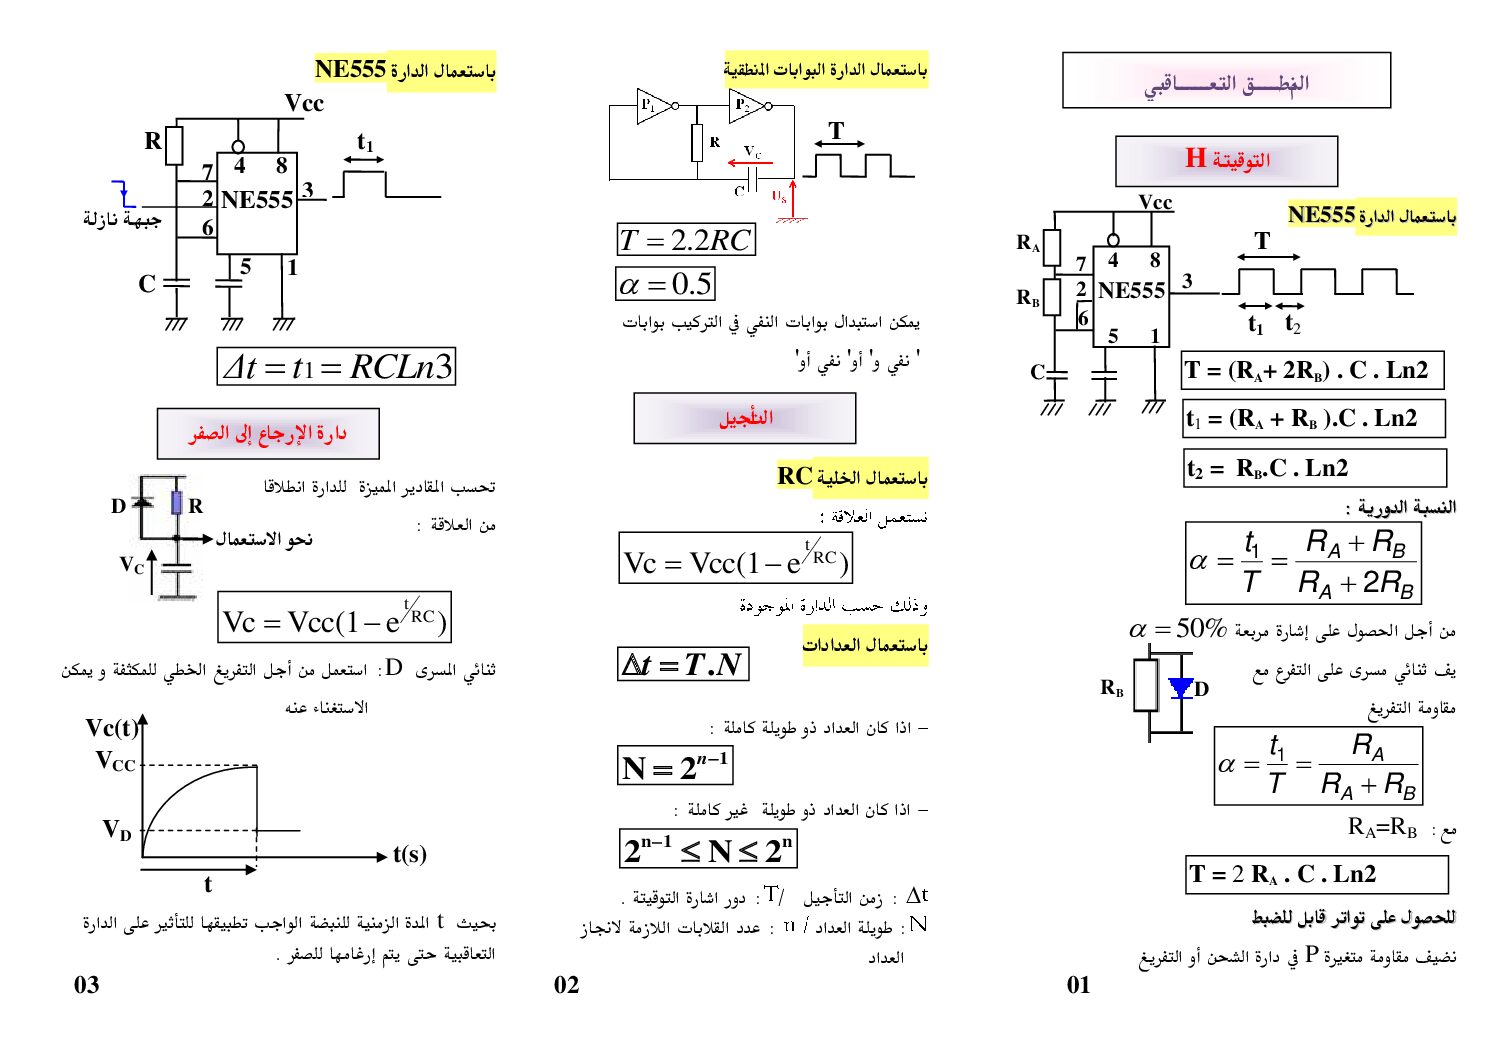 المنطق التعاقبي
التوقيتة H
باستعمال الدارة NE555
Vcc
RA
RB
C
7
2
6
4
8
NE555
3
5
1
T
t1
t2
T = (RA+ 2RB) . C . Ln2
t1 = (RA + RB ).C . Ln2
t2 = RB.C . Ln2
النسبة الدورية :
α = t1/T = (RA + RB)/(RA + 2RB)
من أجل الحصول على إشارة مربعة α = 50%
يف ثنائي مسرى على التفرع مع
مقاومة التفريغ
RB
D
α = t1/T = RA/(RA + RB)
مع : RA=RB
T = 2 RA . C . Ln2
للحصول على تواتر قابل للضبط
نضيف مقاومة متغيرة P في دارة الشحن أو التفريغ
01
باستعمال الدارة البوابات المنطقية
P1
P2
R
Vc
C
Us
T
T = 2.2RC
α = 0.5
يمكن استبدال بوابات النفي في التركيب بوابات
' نفي و' أو' نفي أو'
التأجيل
باستعمال الخلية RC
نستعمل العلاقة :
Vc = Vcc(1 − e^t/RC)
وذلك حسب الدارة الموجودة
باستعمال العدادات
Δt = T.N
– اذا كان العداد ذو طويلة كاملة :
N = 2^n−1
– اذا كان العداد ذو طويلة غير كاملة :
2^n−1 ≤ N ≤ 2^n
Δt : زمن التأجيل /T : دور اشارة التوقيتة .
N : طويلة العداد / n : عدد القلابات اللازمة لانجاز
العداد
02
باستعمال الدارة NE555
Vcc
R
t1
7
2
6
4
8
NE555
3
جبهة نازلة
5
1
C
Δt = t1 = RCLn3
دارة الإرجاع إلى الصفر
تحسب المقادير المميزة للدارة انطلاقا
من العلاقة :
D
R
نحو الاستعمال
VC
Vc = Vcc(1 − e^t/RC)
ثنائي المسرى D : استعمل من أجل التفريغ الخطي للمكثفة و يمكن
الاستغناء عنه
Vc(t)
VCC
VD
t(s)
t
بحيث t المدة الزمنية للنبضة الواجب تطبيقها للتأثير على الدارة
التعاقبية حتى يتم إرغامها للصفر .
03